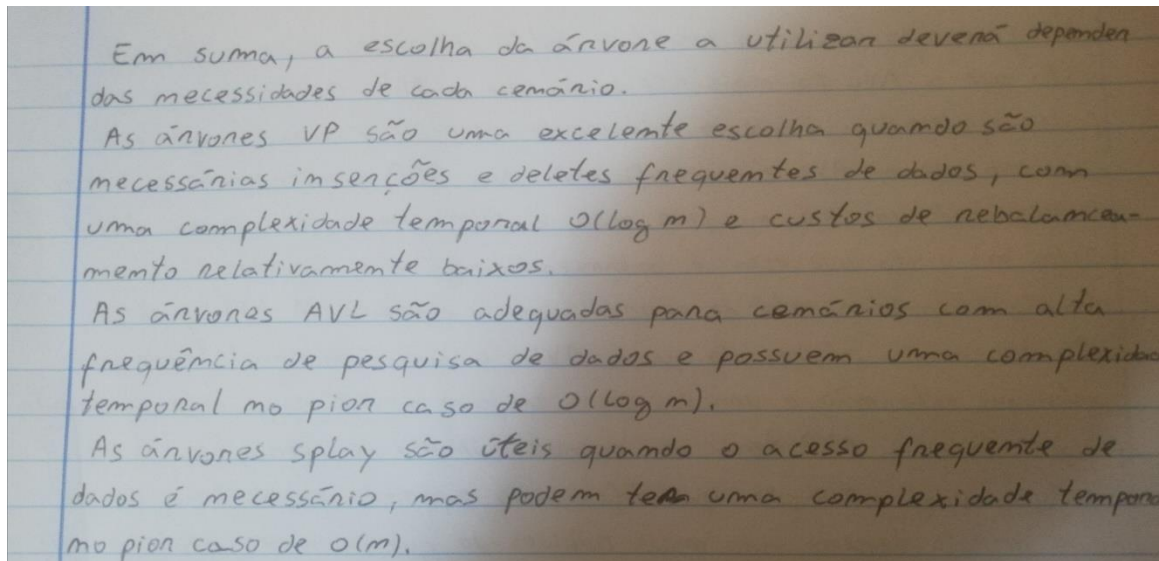 Em suma, a escolha da árvore a utilizar deverá depender
das necessidades de cada cenário.
As árvores VP são uma excelente escolha quando são
necessárias inserções e deletes frequentes de dados, com
uma complexidade temporal O(log n) e custos de rebalancea-
mento relativamente baixos.
As árvores AVL são adequadas para cenários com alta
frequência de pesquisa de dados e possuem uma complexidad
temporal no pior caso de O(log n).
As árvores splay são úteis quando o acesso frequente de
dados é necessário, mas podem ter uma complexidade tempora
no pior caso de O(n).